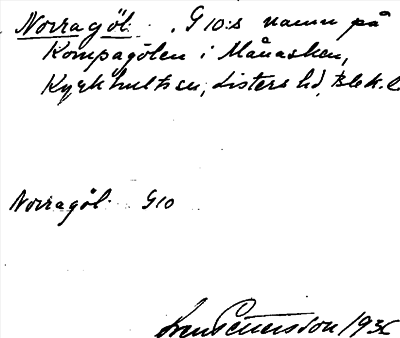 Norragöl. G 10:s namn på
Kompagölen i Månasken,
Kyrkhults sn, Listers hd, Blek. l
Norragöl. G10
Sven Pettersson 1936